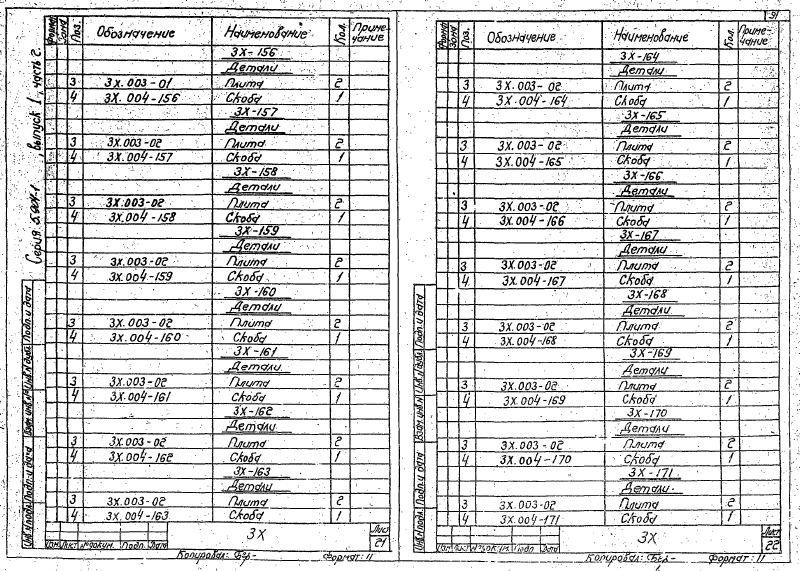 Серия 5.904-1, выпуск 1, часть 2.
Формат Зона Поз. Обозначение Наименование Кол. Примечание
ЗХ-156
Детали
3 ЗХ.003-01 Плита 2
4 ЗХ.004-156 Скоба 1
ЗХ-157
Детали
3 ЗХ.003-02 Плита 2
4 ЗХ.004-157 Скоба 1
ЗХ-158
Детали
3 ЗХ.003-02 Плита 2
4 ЗХ.004-158 Скоба 1
ЗХ-159
Детали
3 ЗХ.003-02 Плита 2
4 ЗХ.004-159 Скоба 1
ЗХ-160
Детали
3 ЗХ.003-02 Плита 2
4 ЗХ.004-160 Скоба 1
ЗХ-161
Детали
3 ЗХ.003-02 Плита 2
4 ЗХ.004-161 Скоба 1
ЗХ-162
Детали
3 ЗХ.003-02 Плита 2
4 ЗХ.004-162 Скоба 1
ЗХ-163
Детали
3 ЗХ.003-02 Плита 2
4 ЗХ.004-163 Скоба 1
Инв.№подл. Подп. и дата Взам.инв.№ Инв.№дубл. Подп. и дата
Изм. Лист №докум. Подп. Дата
ЗХ
Лист
21
Копировал: Бер- Формат: 11
31
Форма Зона Поз. Обозначение Наименование Кол. Примечание
ЗХ-164
Детали
3 ЗХ.003-02 Плита 2
4 ЗХ.004-164 Скоба 1
ЗХ-165
Детали
3 ЗХ.003-02 Плита 2
4 ЗХ.004-165 Скоба 1
ЗХ-166
Детали
3 ЗХ.003-02 Плита 2
4 ЗХ.004-166 Скоба 1
ЗХ-167
Детали
3 ЗХ.003-02 Плита 2
4 ЗХ.004-167 Скоба 1
ЗХ-168
Детали
3 ЗХ.003-02 Плита 2
4 ЗХ.004-168 Скоба 1
ЗХ-169
Детали
3 ЗХ.003-02 Плита 2
4 ЗХ.004-169 Скоба 1
ЗХ-170
Детали
3 ЗХ.003-02 Плита 2
4 ЗХ.004-170 Скоба 1
ЗХ-171
Детали
3 ЗХ.003-02 Плита 2
4 ЗХ.004-171 Скоба 1
Инв.№подл. Подп. и дата Взам.инв.№ Инв.№дубл. Подп. и дата
Изм. Лист №докум. Подп. Дата
ЗХ
Лист
22
Копировал: Бер- Формат: 11